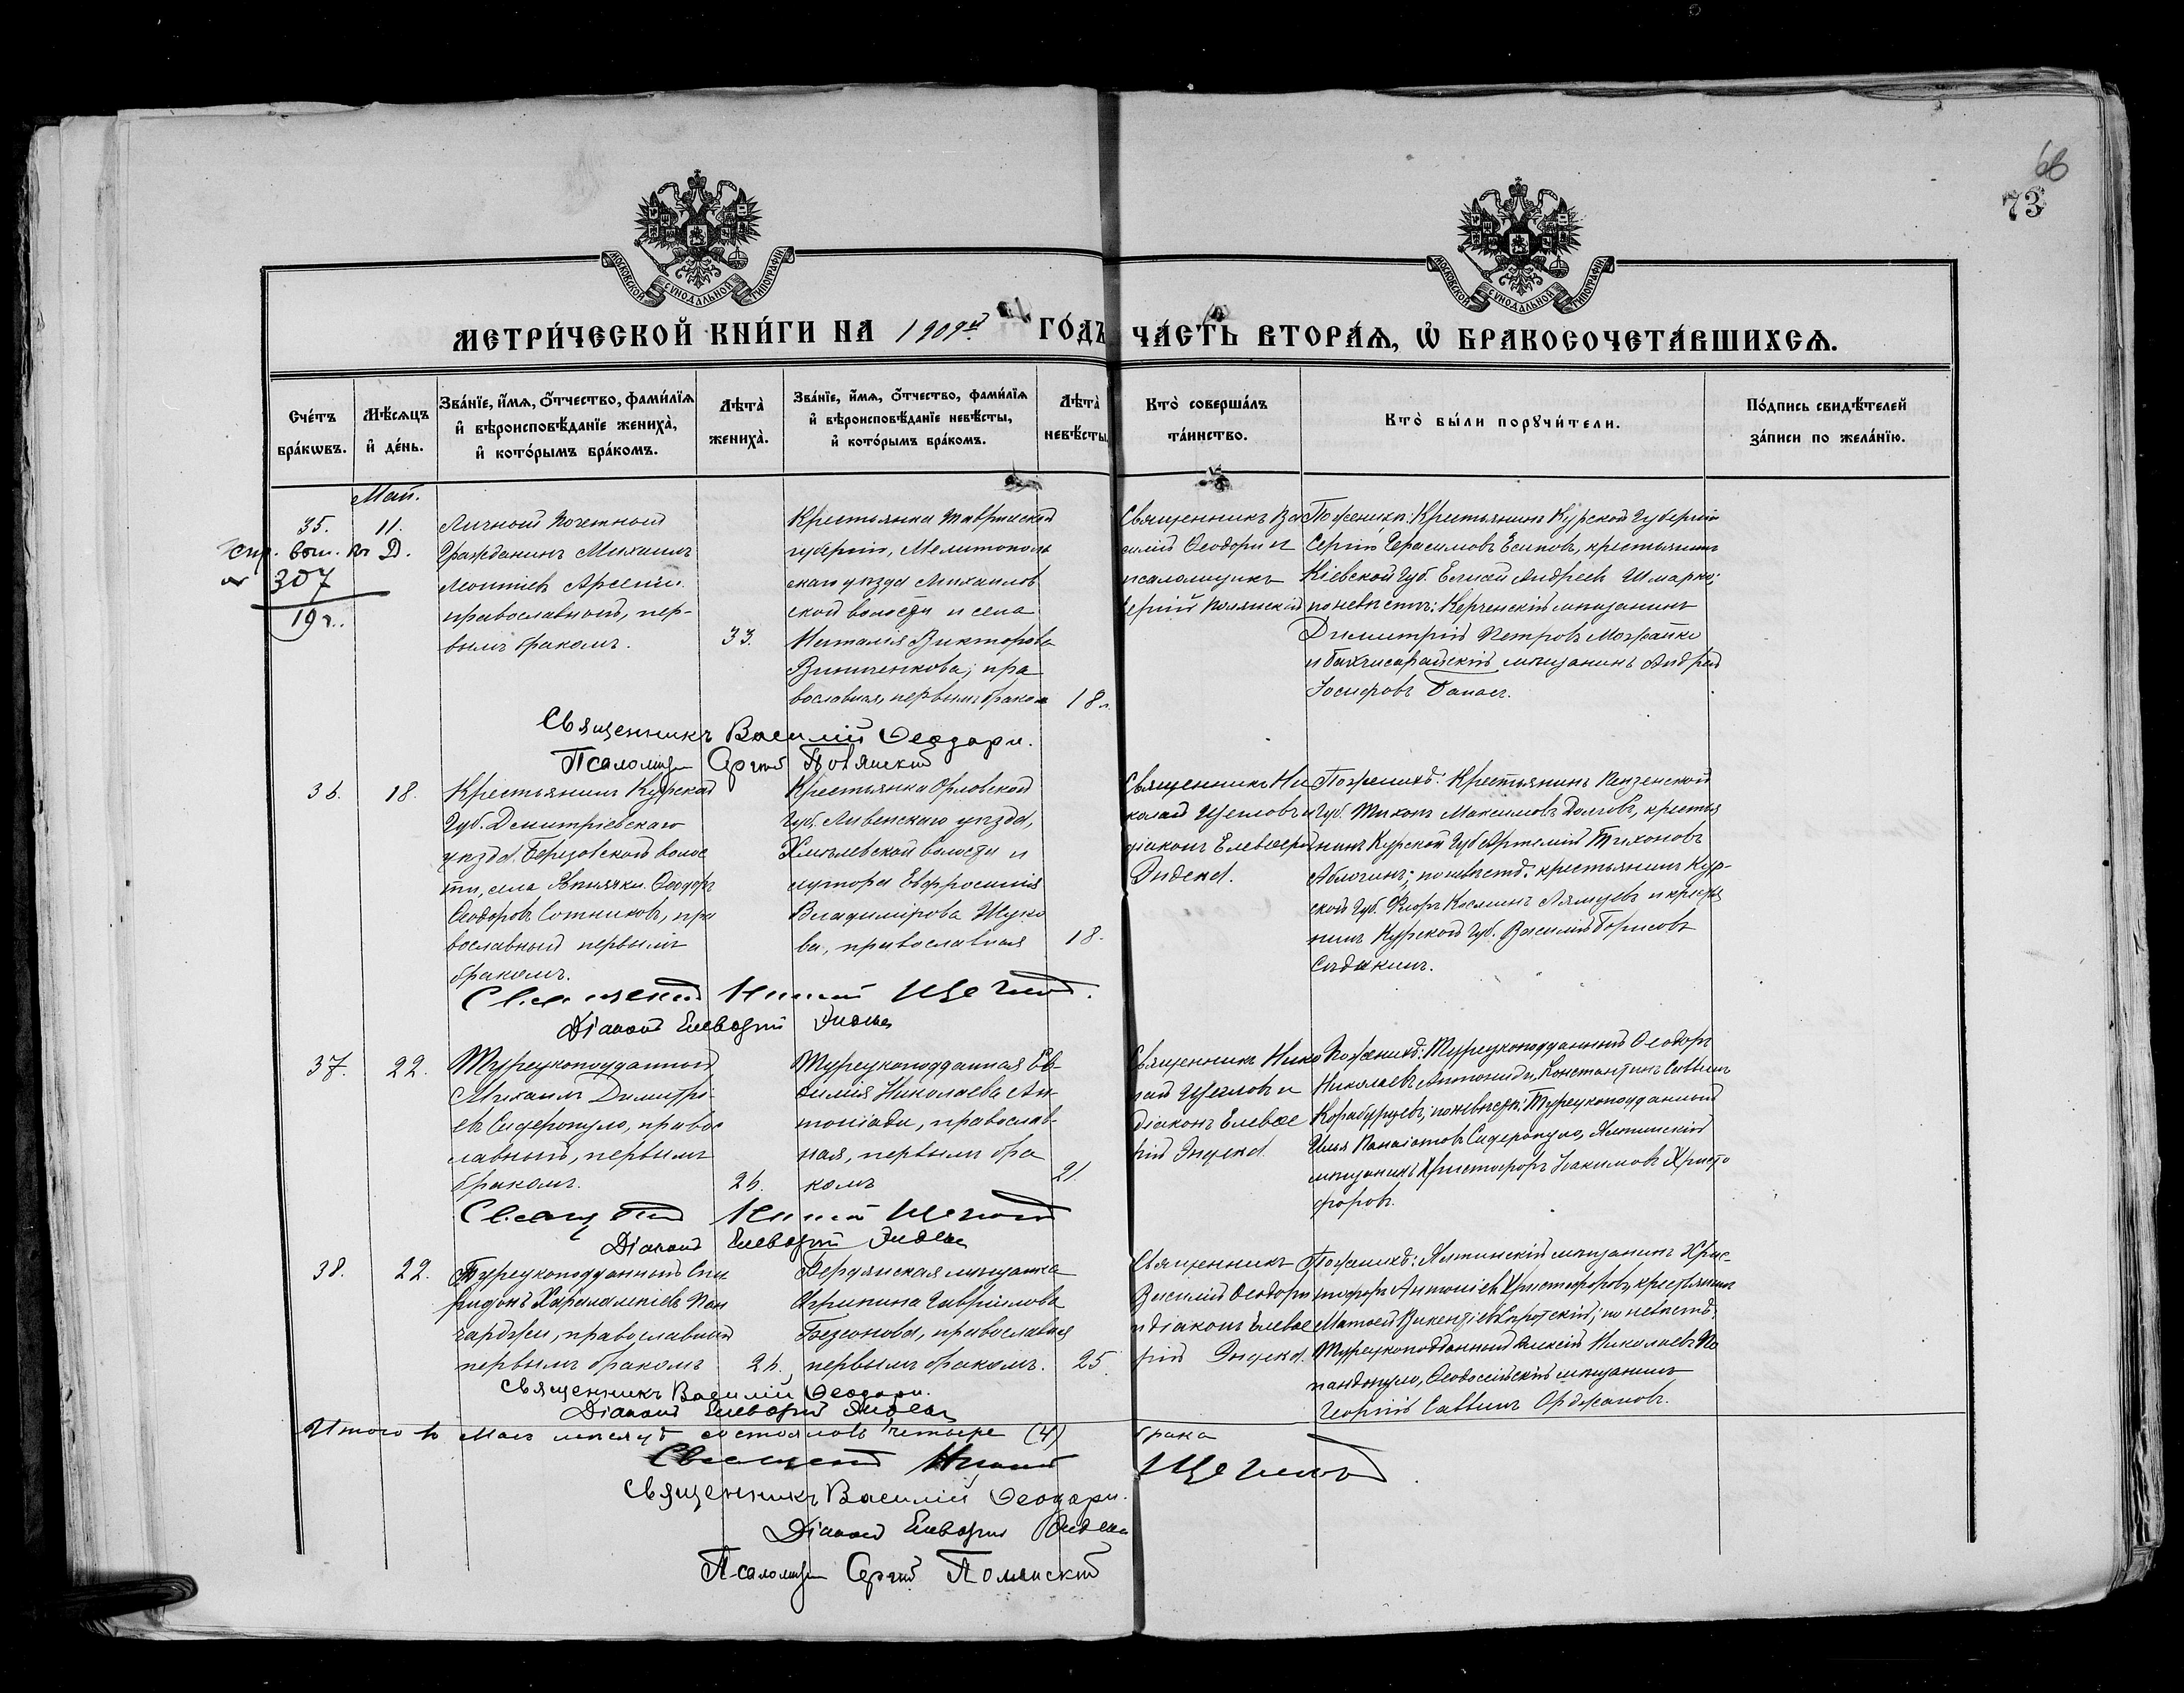 68
73
МОСКОВСКОЙ СѴНОДАЛЬНОЙ ТИПОГРАФІИ
МОСКОВСКОЙ СѴНОДАЛЬНОЙ ТИПОГРАФІИ
МЕТРИ́ЧЕСКОЙ КНИ́ГИ НА 1909й ГО́ДЪ ЧА́СТЬ ВТОРА́Ѧ, Ѡ҆ БРАКОСОЧЕТА́ВШИХСѦ.
Сче́тъ
бра́кѡвъ.
Мѣ́сѧцъ
и҆ де́нь.
Зва́нїе, и҆́мѧ, ѻ҆́тчество, фами́лїѧ
и҆ вѣроисповѣ́данїе жениха̀,
и҆ кото́рымъ бра́комъ.
Лѣ́та̀
жениха̀.
Зва́нїе, и҆́мѧ, ѻ҆́тчество, фами́лїѧ
и҆ вѣроисповѣ́данїе невѣ́сты,
и҆ кото́рымъ бра́комъ.
Лѣ́та̀
невѣ́сты.
Кто̀ соверша́лъ
та́инство.
Кто̀ бы́ли порꙋчи́тели.
По́дпись свидѣ́телей
за́писи по жела́нїю.
Май.
35.
11.
307
19 г.
Личной почетный
Гражданинъ Михаилъ
Леонтіевъ
православный, пер-
вымъ бракомъ.
33.
Крестьянка Таврической
губерніи, Мелитополь
скаго уѣзда Михайлов
ской волости и села
Наталія Викторова
Винниченкова, пра
вославная, первымъ бракомъ
18 л.
Священникъ Ва
силій Феодори и
псаломщикъ
Сергій Полянскій
По женихѣ: Крестьянинъ Курской Губерніи
Сергій Герасимовъ Есиповъ, крестьянинъ
Кіевской Губ. Елисей Андреевъ
по невѣстѣ: Керченскій мѣщанинъ
Димитрій Петровъ
и бахчисарайскій мѣщанинъ Андрей
Іосифовъ
Священникъ Василій Феодори.
Псаломщ Сергій Полянскій
36.
18.
Крестьянинъ Курской
Губ. Дмитріевскаго
уѣзда, Березовской волос
ти, села Феодоръ
Феодоровъ Сотниковъ, пра
вославный первымъ
бракомъ.
Крестьянка Орловской
Губ. Ливенскаго уѣзда,
волости и
хутора Евфросинія
Владимірова Жуко
ва, православная
18.
Священникъ Ни
колай Щегловъ и
діаконъ Елевферій
По женихѣ: Крестьянинъ Пензенской
Губ. Тихонъ Максимовъ Долговъ, крестья
нинъ Курской Губ. Артемій Тихоновъ
по невѣстѣ: крестьянинъ Кур-
ской Губ. Флоръ Косминъ и крестья
нинъ Курской Губ. Василій Борисовъ
Священникъ Николай Щегловъ.
Діаконъ Елевферій
37.
22.
Турецкоподданный
Михаилъ Димитрі-
евъ Сидеропуло, правос
лавный, первымъ
бракомъ.
26.
Турецкоподданная Ев-
Николаева Ан-
тоніади, православ-
ная, первымъ бра
комъ
21.
Священникъ Нико
лай Щегловъ и
діаконъ Елевфе
рій
По женихѣ: Турецкоподданный Феодоръ
Николаевъ Антоніади, Константинъ Саввинъ
по невѣстѣ: Турецкоподданный
Илія Панаіотовъ Сидеропуло, Ялтинскій
мѣщанинъ Христофоръ Іоакимовъ Христо
форовъ.
Священникъ Николай Щегловъ
Діаконъ Елевферій
38.
22.
Турецкоподданный Спи
ридонъ Харалампіевъ Пан
православный
первымъ бракомъ
26.
Бердянская мѣщанка
Агрипина Гавріилова
Безсонова, православная
первымъ бракомъ.
25
Священникъ
Василій Феодори
и діаконъ Елевфе
рій
По женихѣ: Ялтинскій мѣщанинъ Хрис-
тофоръ Антоніевъ Христофоровъ, крестьянинъ
Матфей Викентіевъ по невѣстѣ:
Турецкоподданный Алексій Николаевъ Па
пандопуло, Феодосійскій мѣщанинъ
Георгій Саввинъ
Священникъ Василій Феодори.
Діаконъ Елевферій
Итого въ Маѣ мѣсяцѣ состоялось четыре (4) брака
Священникъ Николай Щегловъ
Священникъ Василій Феодори.
Діаконъ Елевферій
Псаломщ Сергій Полянскій